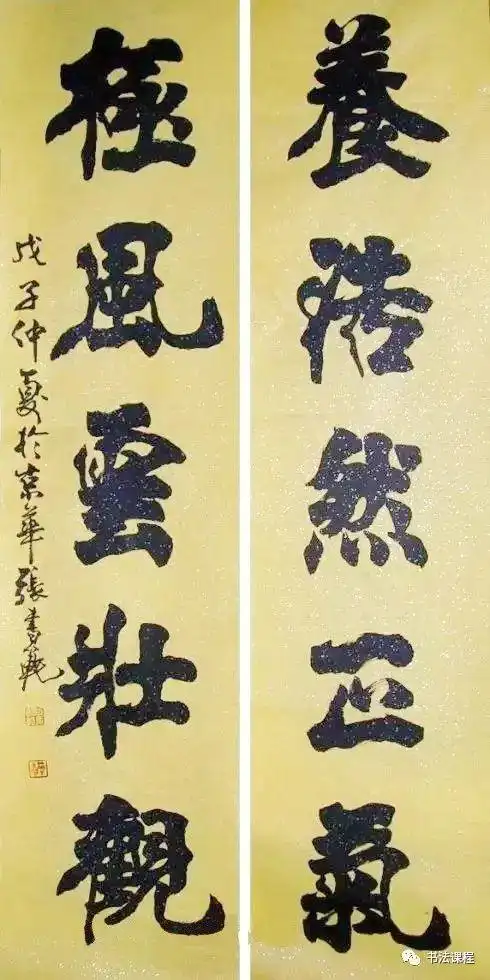 養浩然正氣
極風雲壯觀
戊子仲夏於京華張書範
书法课程